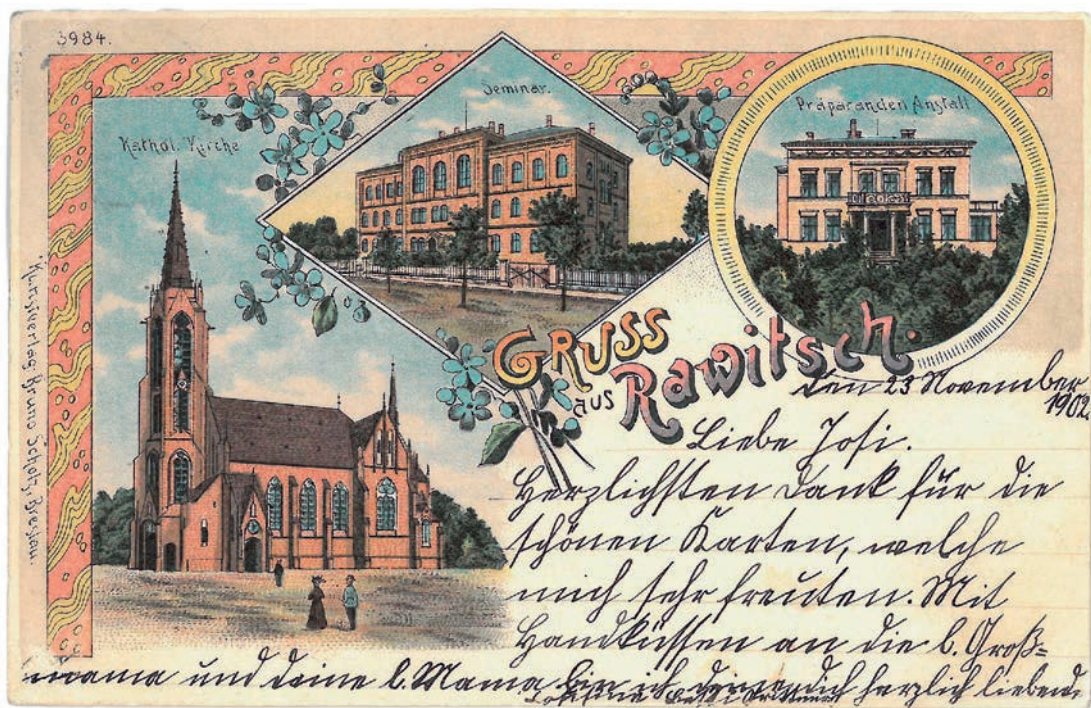 3984.
Kathol. Kirche
Seminar.
Präparanden Anstalt
Kunstverlag Bruno Scholz, Breslau.
GRUSS
aus Rawitsch.
den 23 November
1902
Liebe Josi.
Herzlichsten Dank für die
schönen Karten, welche
mich sehr freuten. Mit
Handküssen an die l. Groß=
mama und deine l. Mama bin ich deine dich herzlich liebende